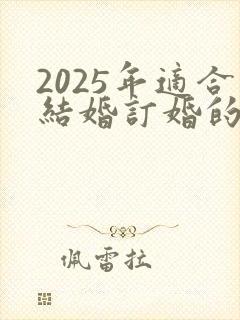 2025年適合
結婚訂婚的
佩雷拉